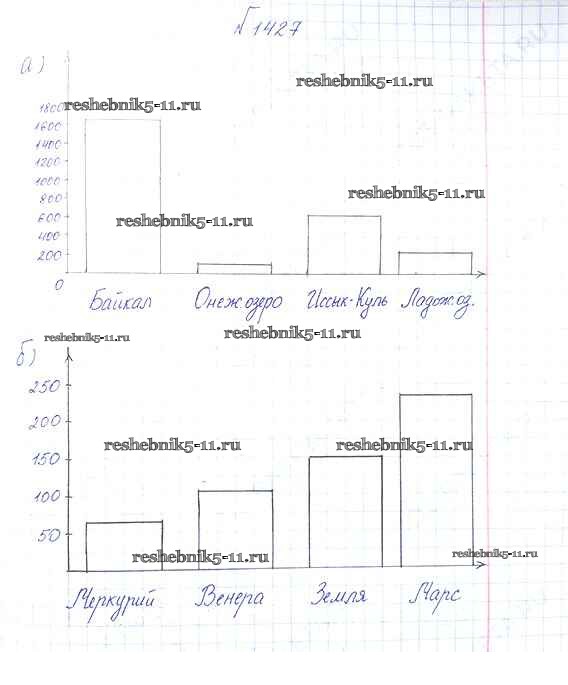 № 1427
а)
reshebnik5-11.ru
1800 reshebnik5-11.ru
1600
1400
1200
1000
800 reshebnik5-11.ru
600 reshebnik5-11.ru
400
200
0
Байкал Онеж.озеро Иссык-Куль Ладож.оз.
reshebnik5-11.ru reshebnik5-11.ru
б)
250
200
reshebnik5-11.ru reshebnik5-11.ru
150
100
50
reshebnik5-11.ru reshebnik5-11.ru
Меркурий Венера Земля Марс